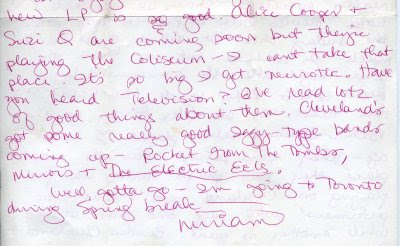 new LP is so good. Alice Cooper +
Suzi Q are coming soon but they're
playing the Coliseum - I can't take that
place. It's so big I get neurotic. Have
you heard Television? I've read lotz
of good things about them. Cleveland's
got some really good Iggy-type bands
coming up - Rocket from The Tombs,
Mirrors + The Electric Eels.
Well, gotta go - I'm going to Toronto
during Spring break
Miriam